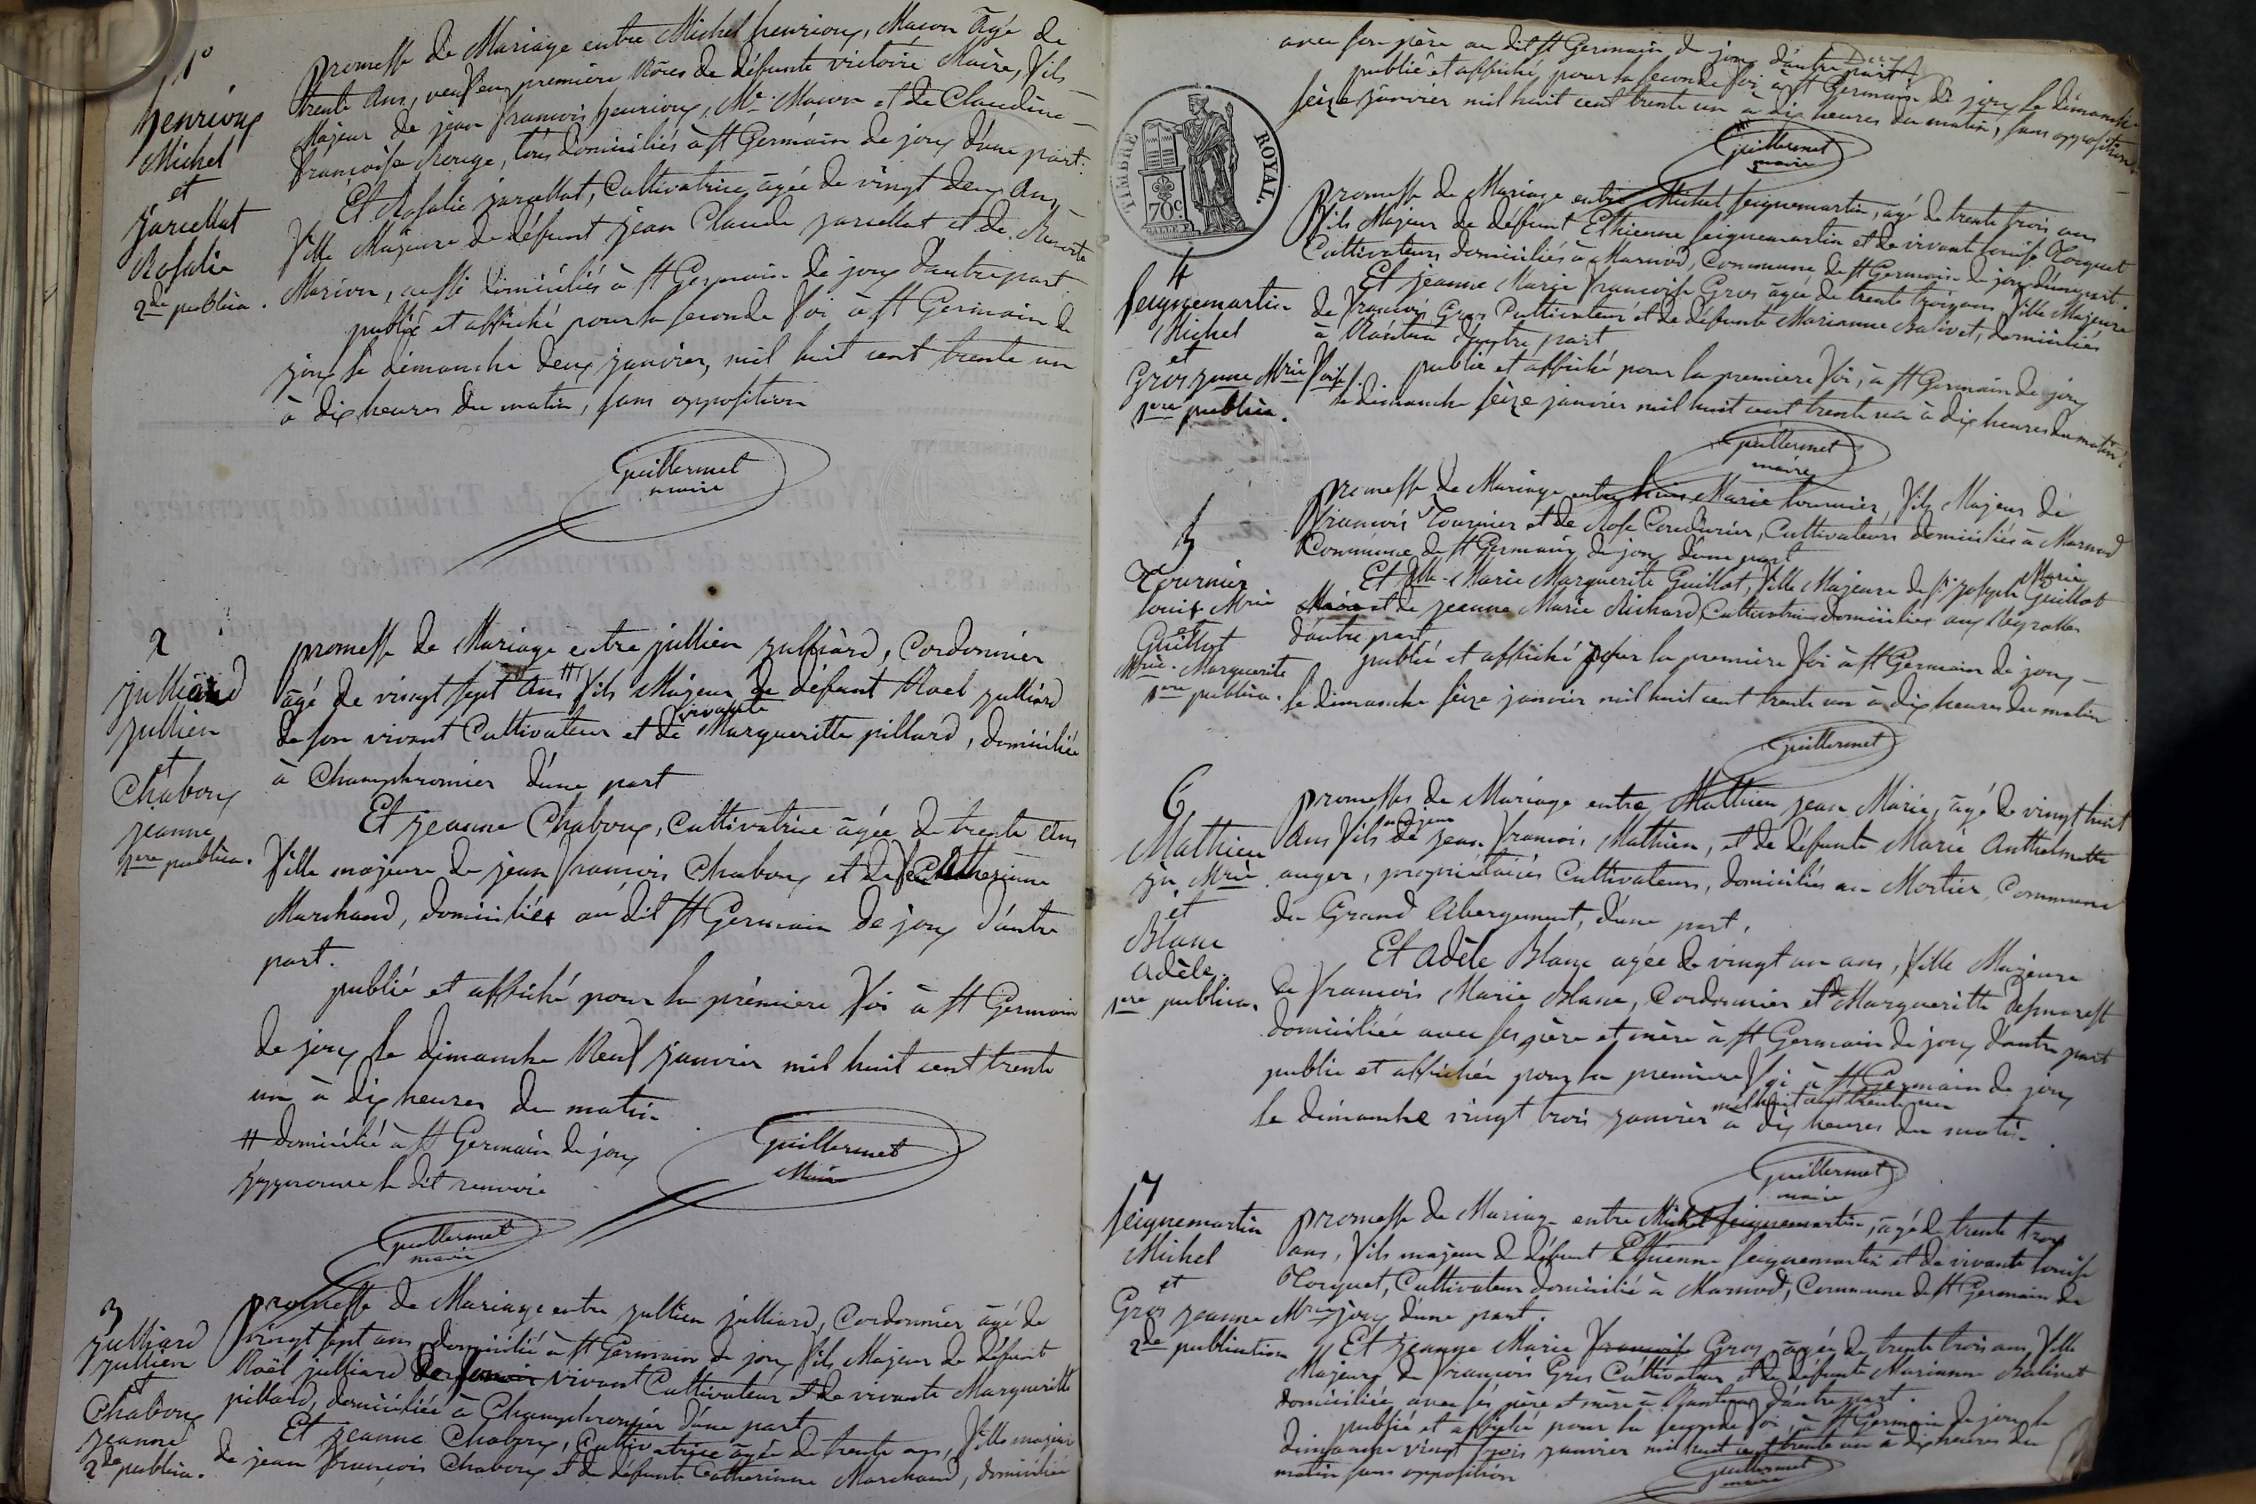 1º
henrioux
Michel
et
jarcellat
Rosalie
2de publica.
promesse de Mariage entre Michel henrioux, Macon âgé de
trente Ans, veuf en première Nôces de défunte victoire Maire, fils
Majeur de jean françois henrioux, Me. Macon et de Claudine
françoise Rouge, tous domiciliés à St Germain de joux d'une part.
Et Rosalie jarcellat, Cultivatrice, agée de vingt deux Ans
fille Majeure de défunt jean Claude jarcellat et de
Marion, aussi domiciliés à St Germain de joux d'autre part
publié et affiché pour la seconde foi à St Germain de
joux le dimanche deux janvier, mil huit cent trente un
à dix heures du matin, sans opposition
Guillermet
maire
2
julliard
jullien
et
Chaboux
jeanne
1ere publica.
promesse de Mariage entre jullien julliard, Cordonnier
âgé de vingt sept Ans # fils Majeur de défunt Noel julliard
de son vivant Cultivateur et de vivante Margueritte pillard, domiciliée
à Champfromier d'une part
Et jeanne Chaboux, Cultivatrice âgée de trente Ans
fille majeure de jean françois Chaboux et de Catherinne
Marchand, domiciliés au dit St Germain de joux d'autre
part.
publié et affiché pour la première foi à St Germain
de joux le dimanche Neuf janvier mil huit cent trente
un à dix heures du matin
# domicilié à St Germain de joux
j'approuve le dit renvoi
Guillermet
Maire
Guillermet
maire
3
julliard
jullien
et
Chaboux
jeanne
2de publica.
promesse de Mariage entre jullien julliard, Cordonnier âgé de
vingt sept ans, domicilié à St Germain de joux fils Majeur de défunt
Noël julliard de son vivant Cultivateur et de vivante Margueritte
pillard, domiciliée à Champfromier d'une part
Et jeanne Chaboux, Cultivatrice âgée de trente ans, fille majeure
de jean françois Chaboux et de défunte Catherinne Marchand, domiciliée
avec son père au dit St Germain de joux d'autre part
publié et affiché pour la seconde foi à St Germain de joux le dimanche
seize janvier mil huit cent trente un à dix heures du matin, sans opposition
Guillermet
maire
TIMBRE ROYAL.
70 c.
4
Seignemartin
Michel
et
Gros jeanne Mrie foise
1ere publica.
promesse de Mariage entre Michel Seignemartin, agé de trente trois ans
fils Majeur de défunt Ethienne Seignemartin et de vivante Louise Tocquet
Cultivateurs domiciliés à Marnod, Commune de St Germain de joux d'une part.
Et jeanne Marie françoise Gros âgée de trente trois ans fille Majeure
de françois Gros Cultivateur et de défunte Marianne Balivet, domiciliés
à d'autre part
publié et affiché pour la première foi, à St Germain de joux
le dimanche seize janvier mil huit cent trente un à dix heures du matin
Guillermet
maire
5
Tournier
Louis Mrie
et
Guillot
Mrie. Marguerite
1ere publica.
promesse de Mariage entre Louis Marie tournier, fils Majeur de
françois Tournier et de Rose Coudurier, Cultivateurs domiciliés à Marnod
Commune de St Germain de joux d'une part
Et Marie Marguerite Guillot, fille Majeure de Sr joseph Marie Guillot
et de jeanne Marie Richard Cultivatrice domiciliés aux Neyrolles
d'autre part
publié et affiché pour la première foi à St Germain de joux
le dimanche seize janvier mil huit cent trente un à dix heures du matin
Guillermet
6
Mathieu
jn. Mrie
et
Blanc
Adèle
1ere publica.
promesses de Mariage entre Mathieu jean Marie, âgé de vingt huit
Ans fils majeur de jean françois Mathieu, et de défunte Marie Anthelmette
auger, propriétaires Cultivateurs, domiciliés au Mortier, Commune
du Grand Abergement, d'une part,
Et Adèle Blanc agée de vingt un ans, fille Majeure
de françois Marie Blanc, Cordonnier et de Margueritte Desmarest
domiciliée avec ses père et mère à St Germain de joux d'autre part
publié et affichée pour la première foi à St Germain de joux
le dimanche vingt trois janvier mil huit cent trente un à dix heures du matin.
Guillermet
maire
7
Seignemartin
Michel
et
Gros jeanne Mrie
2de publication
promesse de Mariage entre Michel Seignemartin, agé de trente trois
ans, fils majeur de défunt Ethienne Seignemartin et de vivante Louise
Tocquet, Cultivateur domicilié à Marnod, Commune de St Germain de
joux d'une part.
Et jeanne Marie françoise Gros âgée de trente trois ans, fille
Majeure de françois Gros Cultivateur et de défunte Marianne Balivet
domiciliée avec ses père et mère à d'autre part.
publié et affiché pour la seconde foi à St Germain de joux le
dimanche vingt trois janvier mil huit cent trente un à dix heures du
matin sans opposition
Guillermet
maire